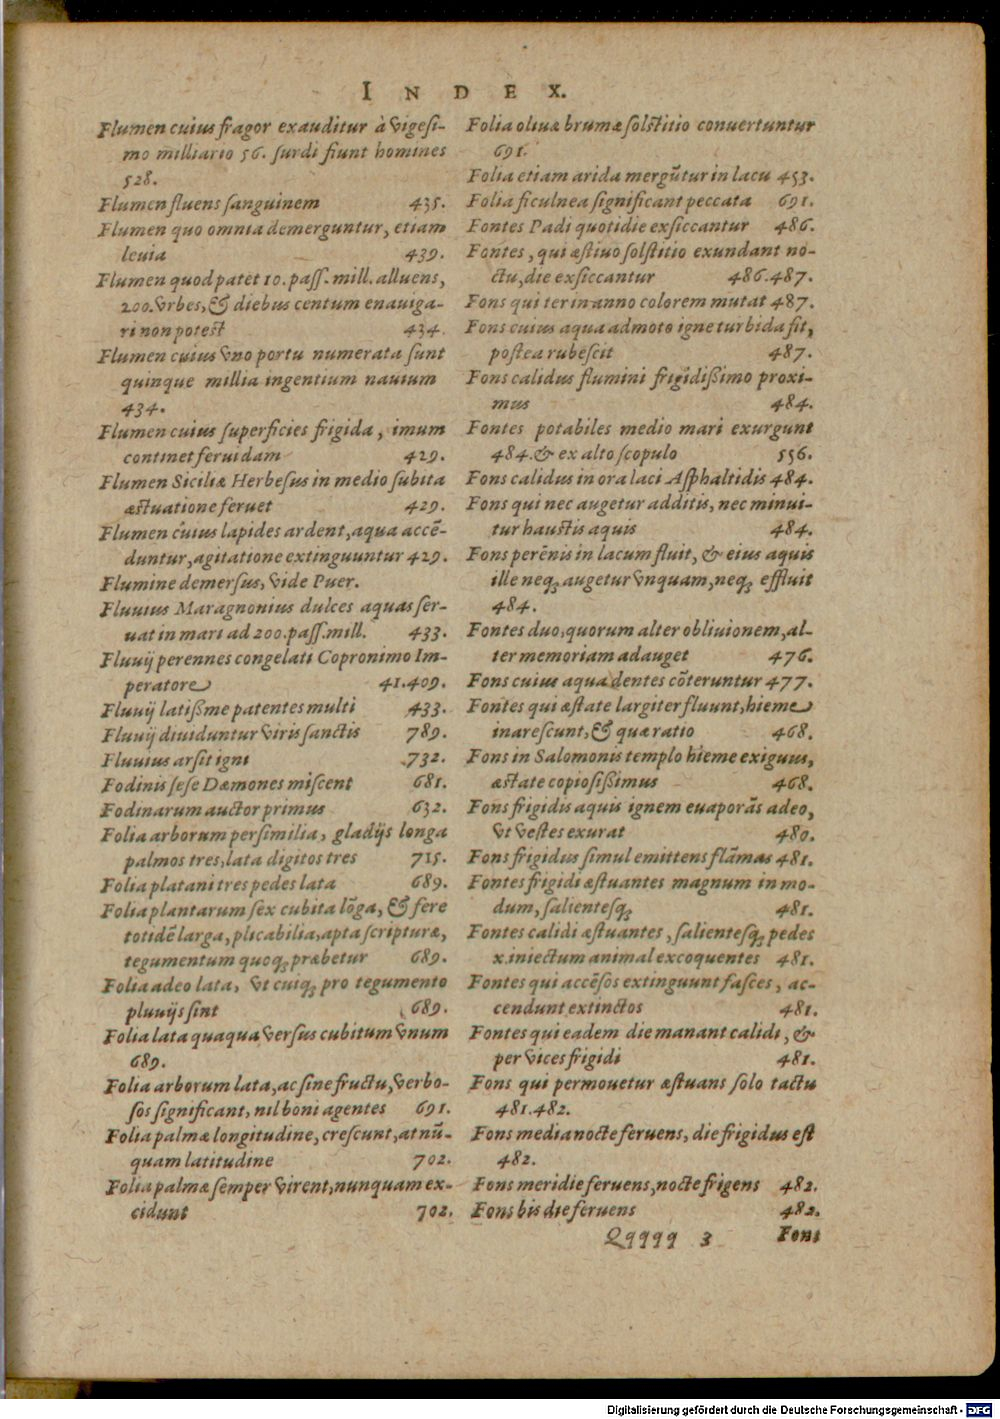 INDEX.
Flumen cuius fragor exauditur à vigeſi-
mo milliario 56. ſurdi fiunt homines
528.
Flumen fluens ſanguinem 435.
Flumen quo omnia demerguntur, etiam
leuia 439.
Flumen quod patet 10. paſſ. mill. alluens,
200. vrbes, & diebus centum enauiga-
ri non poteſt 434.
Flumen cuius vno portu numerata ſunt
quinque millia ingentium nauium
434.
Flumen cuius ſuperficies frigida, imum
continet feruidam 429.
Flumen Siciliæ Herbeſus in medio ſubita
æſtuatione feruet 429.
Flumen cuius lapides ardent, aqua accē-
duntur, agitatione extinguuntur 429.
Flumine demerſus, vide Puer.
Fluuius Maragnonius dulces aquas ſer-
uat in mari ad 200. paſſ. mill. 433.
Fluuij perennes congelati Copronimo Im-
peratore 41.409.
Fluuij latißme patentes multi 433.
Fluuij diuiduntur viris ſanctis 789.
Fluuius arſit igni 732.
Fodinis ſeſe Dæmones miſcent 681.
Fodinarum auctor primus 632.
Folia arborum perſimilia, gladijs longa
palmos tres, lata digitos tres 715.
Folia platani tres pedes lata 689.
Folia plantarum ſex cubita lōga, & fere
totidē larga, plicabilia, apta ſcripturæ,
tegumentum quoq; præbetur 689.
Folia adeo lata, vt cuiq; pro tegumento
pluuijs ſint 689.
Folia lata quaqua verſus cubitum vnum
689.
Folia arborum lata, ac ſine fructu, verbo-
ſos ſignificant, nil boni agentes 691.
Folia palmæ longitudine, creſcunt, at nū-
quam latitudine 702.
Folia palmæ ſemper virent, nunquam ex-
cidunt 702.
Folia oliuæ brumæ ſolſtitio conuertuntur
691.
Folia etiam arida mergūtur in lacu 453.
Folia ficulnea ſignificant peccata 691.
Fontes Padi quotidie exſiccantur 486.
Fontes, qui æſtiuo ſolſtitio exundant no-
ctu, die exſiccantur 486.487.
Fons qui ter in anno colorem mutat 487.
Fons cuius aqua admoto igne turbida fit,
poſtea rubeſcit 487.
Fons calidus flumini frigidißimo proxi-
mus 484.
Fontes potabiles medio mari exurgunt
484. & ex alto ſcopulo 556.
Fons calidus in ora laci Aſphaltidis 484.
Fons qui nec augetur additis, nec minui-
tur hauſtis aquis 484.
Fons perēnis in lacum fluit, & eius aquis
ille neq; augetur vnquam, neq; effluit
484.
Fontes duo, quorum alter obliuionem, al-
ter memoriam adauget 476.
Fons cuius aqua dentes cōteruntur 477.
Fontes qui æſtate largiter fluunt, hieme
inareſcunt, & quæ ratio 468.
Fons in Salomonis templo hieme exiguus,
æſtate copioſißimus 468.
Fons frigidis aquis ignem euaporās adeo,
vt veſtes exurat 480.
Fons frigidus ſimul emittens flāmas 481.
Fontes frigidi æſtuantes magnum in mo-
dum, ſalienteſq; 481.
Fontes calidi æſtuantes, ſalienteſq; pedes
x. iniectum animal excoquentes 481.
Fontes qui accēſos extinguunt faſces, ac-
cendunt extinctos 481.
Fontes qui eadem die manant calidi, &
per vices frigidi 481.
Fons qui permouetur æſtuans ſolo tactu
481.482.
Fons media nocte feruens, die frigidus eſt
482.
Fons meridie feruens, nocte frigens 482.
Fons bis die feruens 482.
Qqqqq 3 Fons
Digitalisierung gefördert durch die Deutsche Forschungsgemeinschaft - DFG